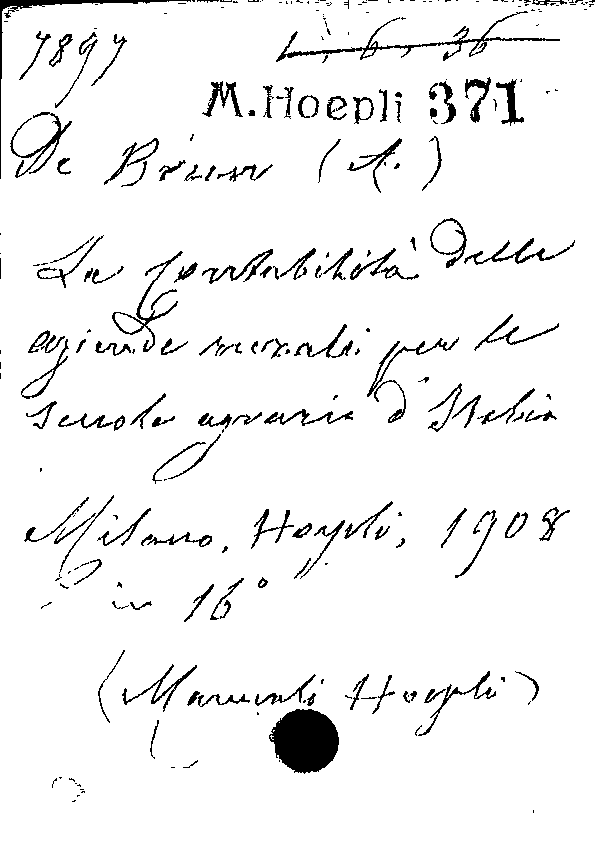 7897 1, 6, 36
M. Hoepli 371
De Brun (A.)
La Contabilità delle
aziende rurali per le
scuole agrarie d'Italia
Milano, Hoepli, 1908
in 16°
(Manuali Hoepli)